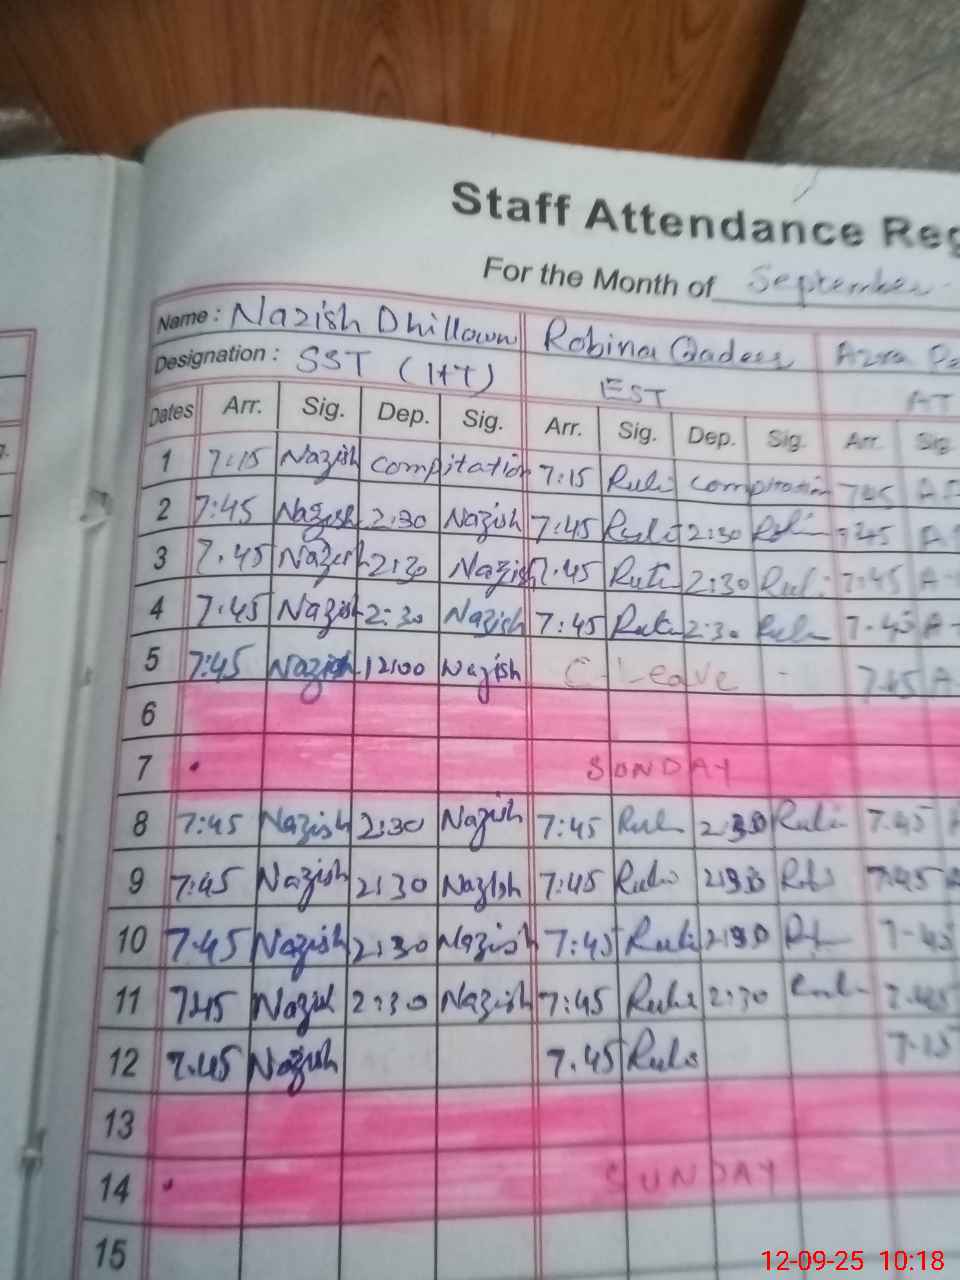 Staff Attendance Reg
For the Month of September
Name : Nazish Dhillown Robina Qadeer Azra
Designation : SST (HT) EST AT
Dates Arr. Sig. Dep. Sig. Arr. Sig. Dep. Sig. Arr. Sig
1 7:15 Nazish Compitation 7:15 Compitation
2 7:45 Nazish 2:30 Nazish 7:45 2:30 7:45 A
3 7.45 Nazish 2:30 Nazish 7.45 2:30 7:45 A
4 7.45 Nazish 2:30 Nazish 7:45 2:30 7.45 A
5 7:45 Nazish 12:00 Nazish C. Leave - 7.45 A
6
7 SUNDAY
8 7:45 Nazish 2:30 Nazish 7:45 2:30 7.45
9 7:45 Nazish 2:30 Nazish 7:45 2:30 7.45
10 7.45 Nazish 2:30 Nazish 7:45 2:30 7.45
11 7.45 Nazish 2:30 Nazish 7:45 2:30 7.45
12 7.45 Nazish 7.45
13
14 SUNDAY
15
12-09-25 10:18